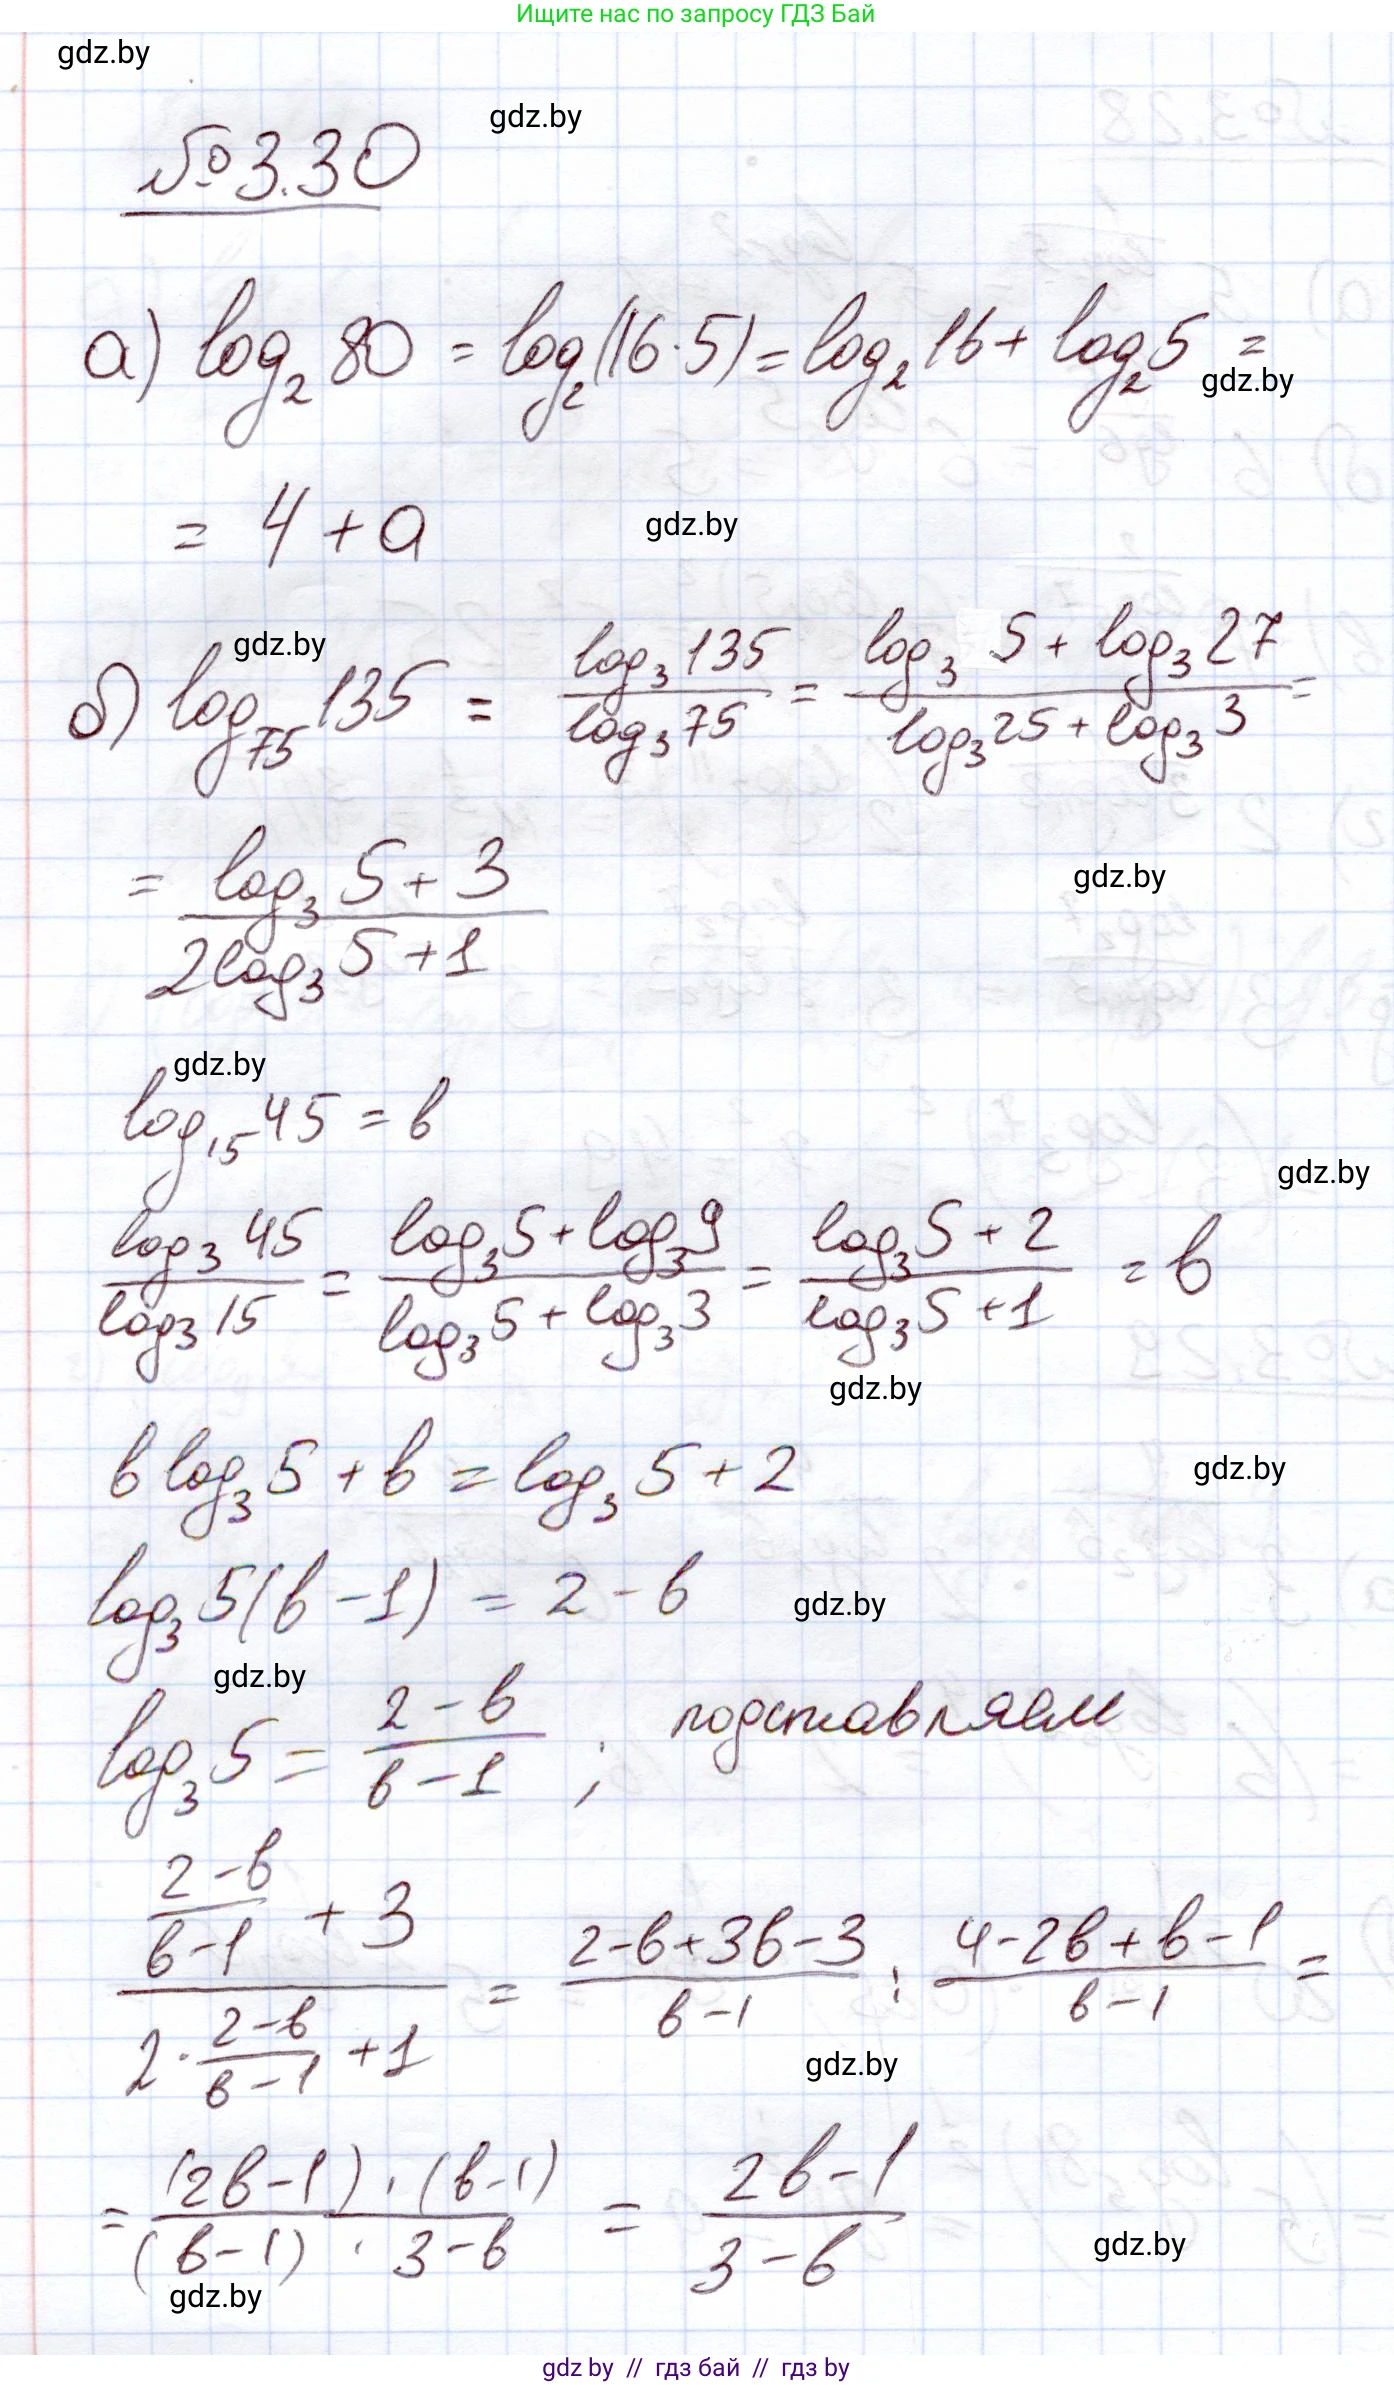 Ищите нас по запросу ГДЗ Бай
gdz.by
gdz.by
№3.30
а) log₂ 80 = log₂(16·5) = log₂ 16 + log₂ 5 =
gdz.by
= 4 + a
gdz.by
gdz.by
б) log₇₅ 135 = (log₃ 135)/(log₃ 75) = (log₃ 5 + log₃ 27)/(log₃ 25 + log₃ 3) =
= (log₃ 5 + 3)/(2log₃ 5 + 1)
gdz.by
gdz.by
log₁₅ 45 = b
gdz.by
(log₃ 45)/(log₃ 15) = (log₃ 5 + log₃ 9)/(log₃ 5 + log₃ 3) = (log₃ 5 + 2)/(log₃ 5 + 1) = b
gdz.by
b log₃ 5 + b = log₃ 5 + 2
gdz.by
log₃ 5(b - 1) = 2 - b
gdz.by
gdz.by
log₃ 5 = (2 - b)/(b - 1) ; подставляем
((2 - b)/(b - 1) + 3)/(2·(2 - b)/(b - 1) + 1) = (2 - b + 3b - 3)/(b - 1) : (4 - 2b + b - 1)/(b - 1) =
gdz.by
= ((2b - 1)·(b - 1))/((b - 1)·3 - b) = (2b - 1)/(3 - b)
gdz.by
gdz.by
gdz by // гдз бай // гдз by